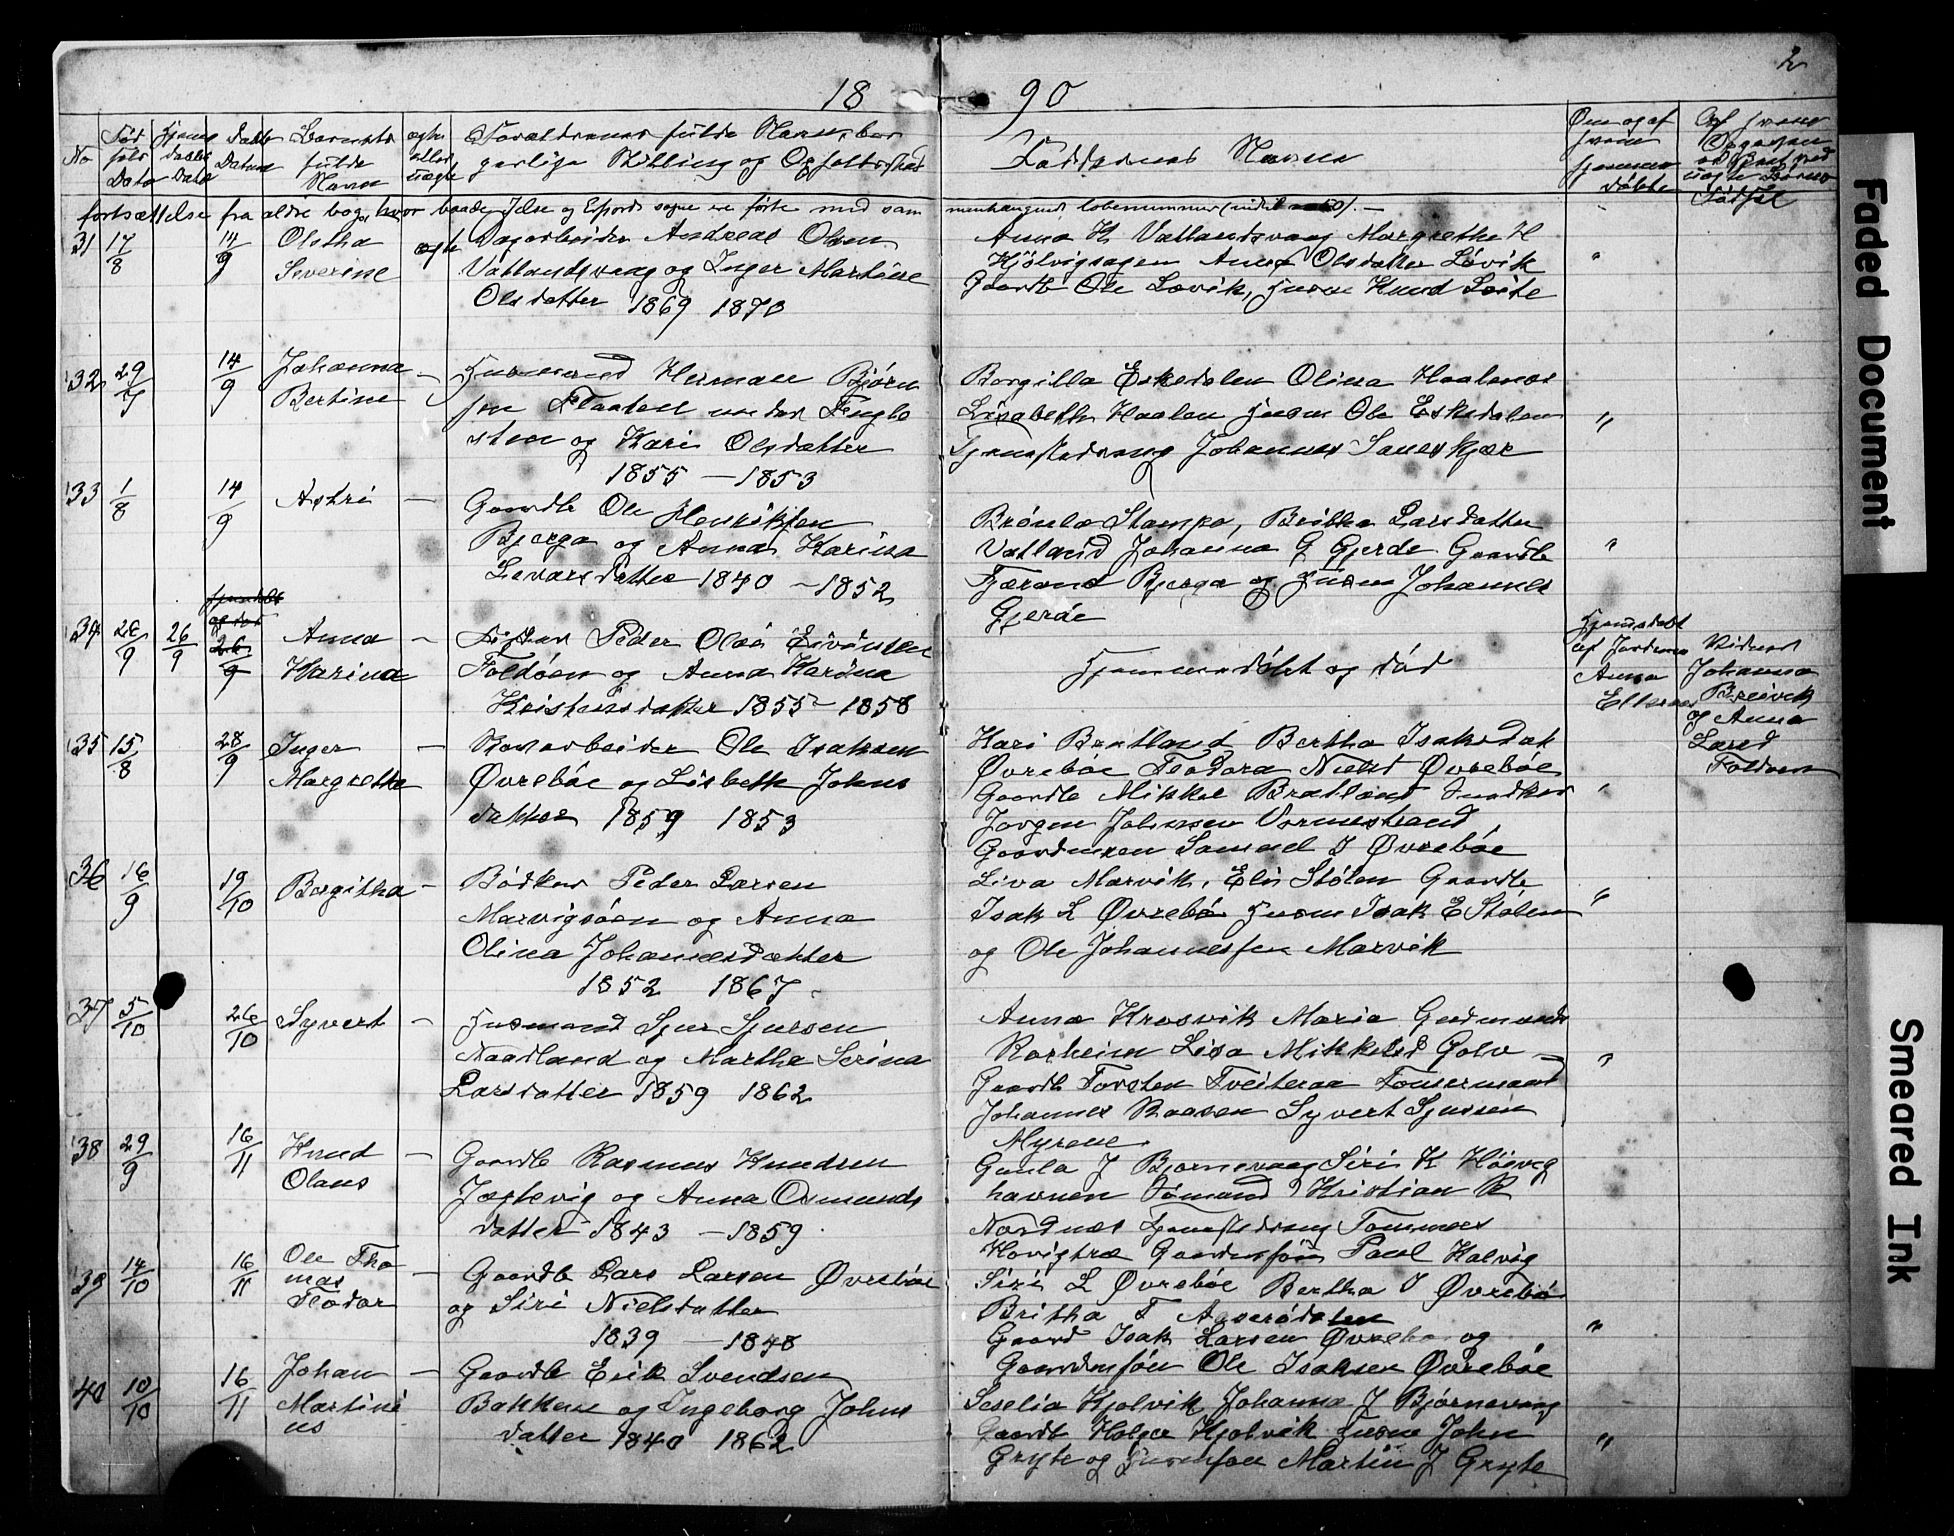 2
18 90
No Fød fels Dato Hjemme daabs Dato Daabs Datum Barnets fulde Navn ægte eller uægte Forældrenes fulde Navn, bor
gerlige Stilling og Opholdssted
Faddernes Navne
Om og af hvem hjemme døbte
fortsættelse fra ældre bog, hvor baade Jelse og Erfjords sogne ere førte med sam menhængende løbenummer
31 17/8 14/9 Oletha Severine ægte Dagarbeider Andreas Olsen
Vatlandsvaag og Inger Martine
Olsdatter 1869 1870
Anna K Vatlandsvaag Margrethe H
Hjølvigsagen Anna Olsdatter Løvik
Gaardb Ole Løvik, Husm Knud Leite
"
32 29/7 14/9 Johanna Bertine – Husmand Herman Bjørn
sen Flaaten under Tingle
sten og Kari Olsdatter
1855 – 1853
Borgilla Eskedalen Olina Haalenes
Lisabeth Haalen Husm Ole Eskedalen
Tjenestedreng Johannes Saneskjær
"
33 1/8 14/9 Astri – Gaardb Ole Henriksen
Bjerga og Anna Karina
Levarsdatter 1840 – 1852
Stampa, Britha Larsdatter
Vatland Johanna G Gjerde Gaardb
Tjærand Bjerga og Husm Johannes
Gjerde
"
34 26/9 26/9 Anna Karina – Fisker Peder Olai Eivindsen
Foldøen og Anna Karina
Kristensdatter 1855 – 1858
Hjemmedøbt og død
Hjemdøbt af Jordemor Anna Eltenes
Vidner Johanna Breivik og Anna Larsd Foldøen
35 15/8 28/9 Inger Margretha – Ole Isaksen
Øvrebøe og Lisbeth Johns
datter 1859 1853
Kari Bratland Bertha Isaksdat
Øvrebøe Teodora Nielsd Øvrebøe
Gaardb Mikkel Bratland Snedker
Jørgen Johnsen Vormestrand
Gaardmsøn Samuel I Øvrebøe
"
36 16/9 19/10 Borgitha – Bødker Peder Larsen
Marvigsøen og Anna
Olina Johannesdatter
1852 1867
Liva Marvik, Eli Stølen Gaardb
Isak L Øvrebø Husm Isak E Stølen
og Ole Johannessen Marvik
"
37 5/10 26/10 Syvert – Husmand Sjur Sjursen
Naadland og Martha Serina
Larsdatter 1859 1862
Anna Krosvik Maria Gudmunds
Rorheim Lisa Mikkelsd Golv –
Gaardb Torsten Tveiteraa Tømermand
Johannes Raaven Syvert Sjursen
Myrene
"
38 29/9 16/11 Knud Olaus – Gaardb Rasmus Knudsen
Jægtevig og Anna Osmunds
datter 1843 – 1859
Gunla J Bjørnevaag Siri K Høivig
havnen Sømand Kristian R
Nordnes Tjenestedreng Tommes
Hovigtræ Gaardmsøn Paul Kalvig
39 14/10 16/11 Ole Tho mas Teodor – Gaardb Lars Larsen Øvrebøe
og Siri Nielsdatter
1839 – 1848
Siri L Øvrebøe Bertha I Øvrebø
Britha T Aaserødalen
Gaard Isak Larsen Øvrebø og
Gaardmsøn Ole Isaksen Øvrebøe
"
40 10/10 16/11 Johan Martini us – Gaardb Erik Svendsen
Bakken og Ingeborg Johns
datter 1840 1862
Seselia Hjolvik Johanna J Bjørnevaag
Gaardb Holger Hjolvik Husm John
Gryte og Husmsøn Martin J Gryte
"
Faded Document
Smeared Ink